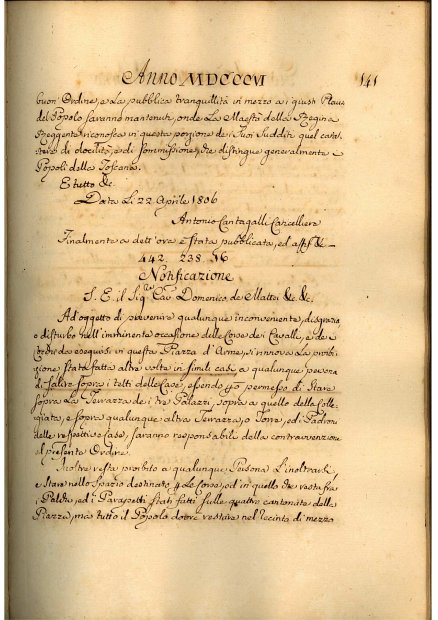 Anno MDCCCVI
141
buon' Ordine, e la pubblica tranquillità in mezzo a i giusti Plausi
del Popolo saranno mantenute, onde La Maestà della Regina
Reggente riconosca in questa porzione dei Suoi Sudditi quel carat-
tere di docilità, e di sommissione, che distingue generalmente i
Popoli della Toscana.
E tutto &c.
Data Li 22 Aprile 1806
Antonio Cantagalli Cancelliere
Finalmente a dett' ora è stata pubblicata, ed
442. 238. 56
Notificazione
S. E. il Sig. Cav. Domenico de Mattei &c. &c.
Ad oggetto di prevenire qualunque inconveniente, disgrazia
o disturbo nell' imminente occasione delle Corse dei Cavalli, e de i
da eseguirsi in questa Piazza d'Arme, si rinnova la proibi-
zione stata fatta altre volte in simili casi a qualunque persona
di salire sopra i tetti delle Case, essendo già permesso di stare
sopra La Terrazza de i tre Palazzi, sopra a quello della Colle-
giata, e sopra qualunque altra Terrazza, o Torre, ed i Padroni
delle respettive Case, saranno responsabili della contravvenzione
al presente Ordine.
Inoltre resta proibito a qualunque Persona L'inoltrarsi,
e stare nello spazio destinato p Le Corse, ed in quello che resta fra
i Palchi, ed i Parapetti stati fatti sulle quattro cantonate della
Piazza, ma tutto il Popolo dovrà restare nel recinto di mezzo